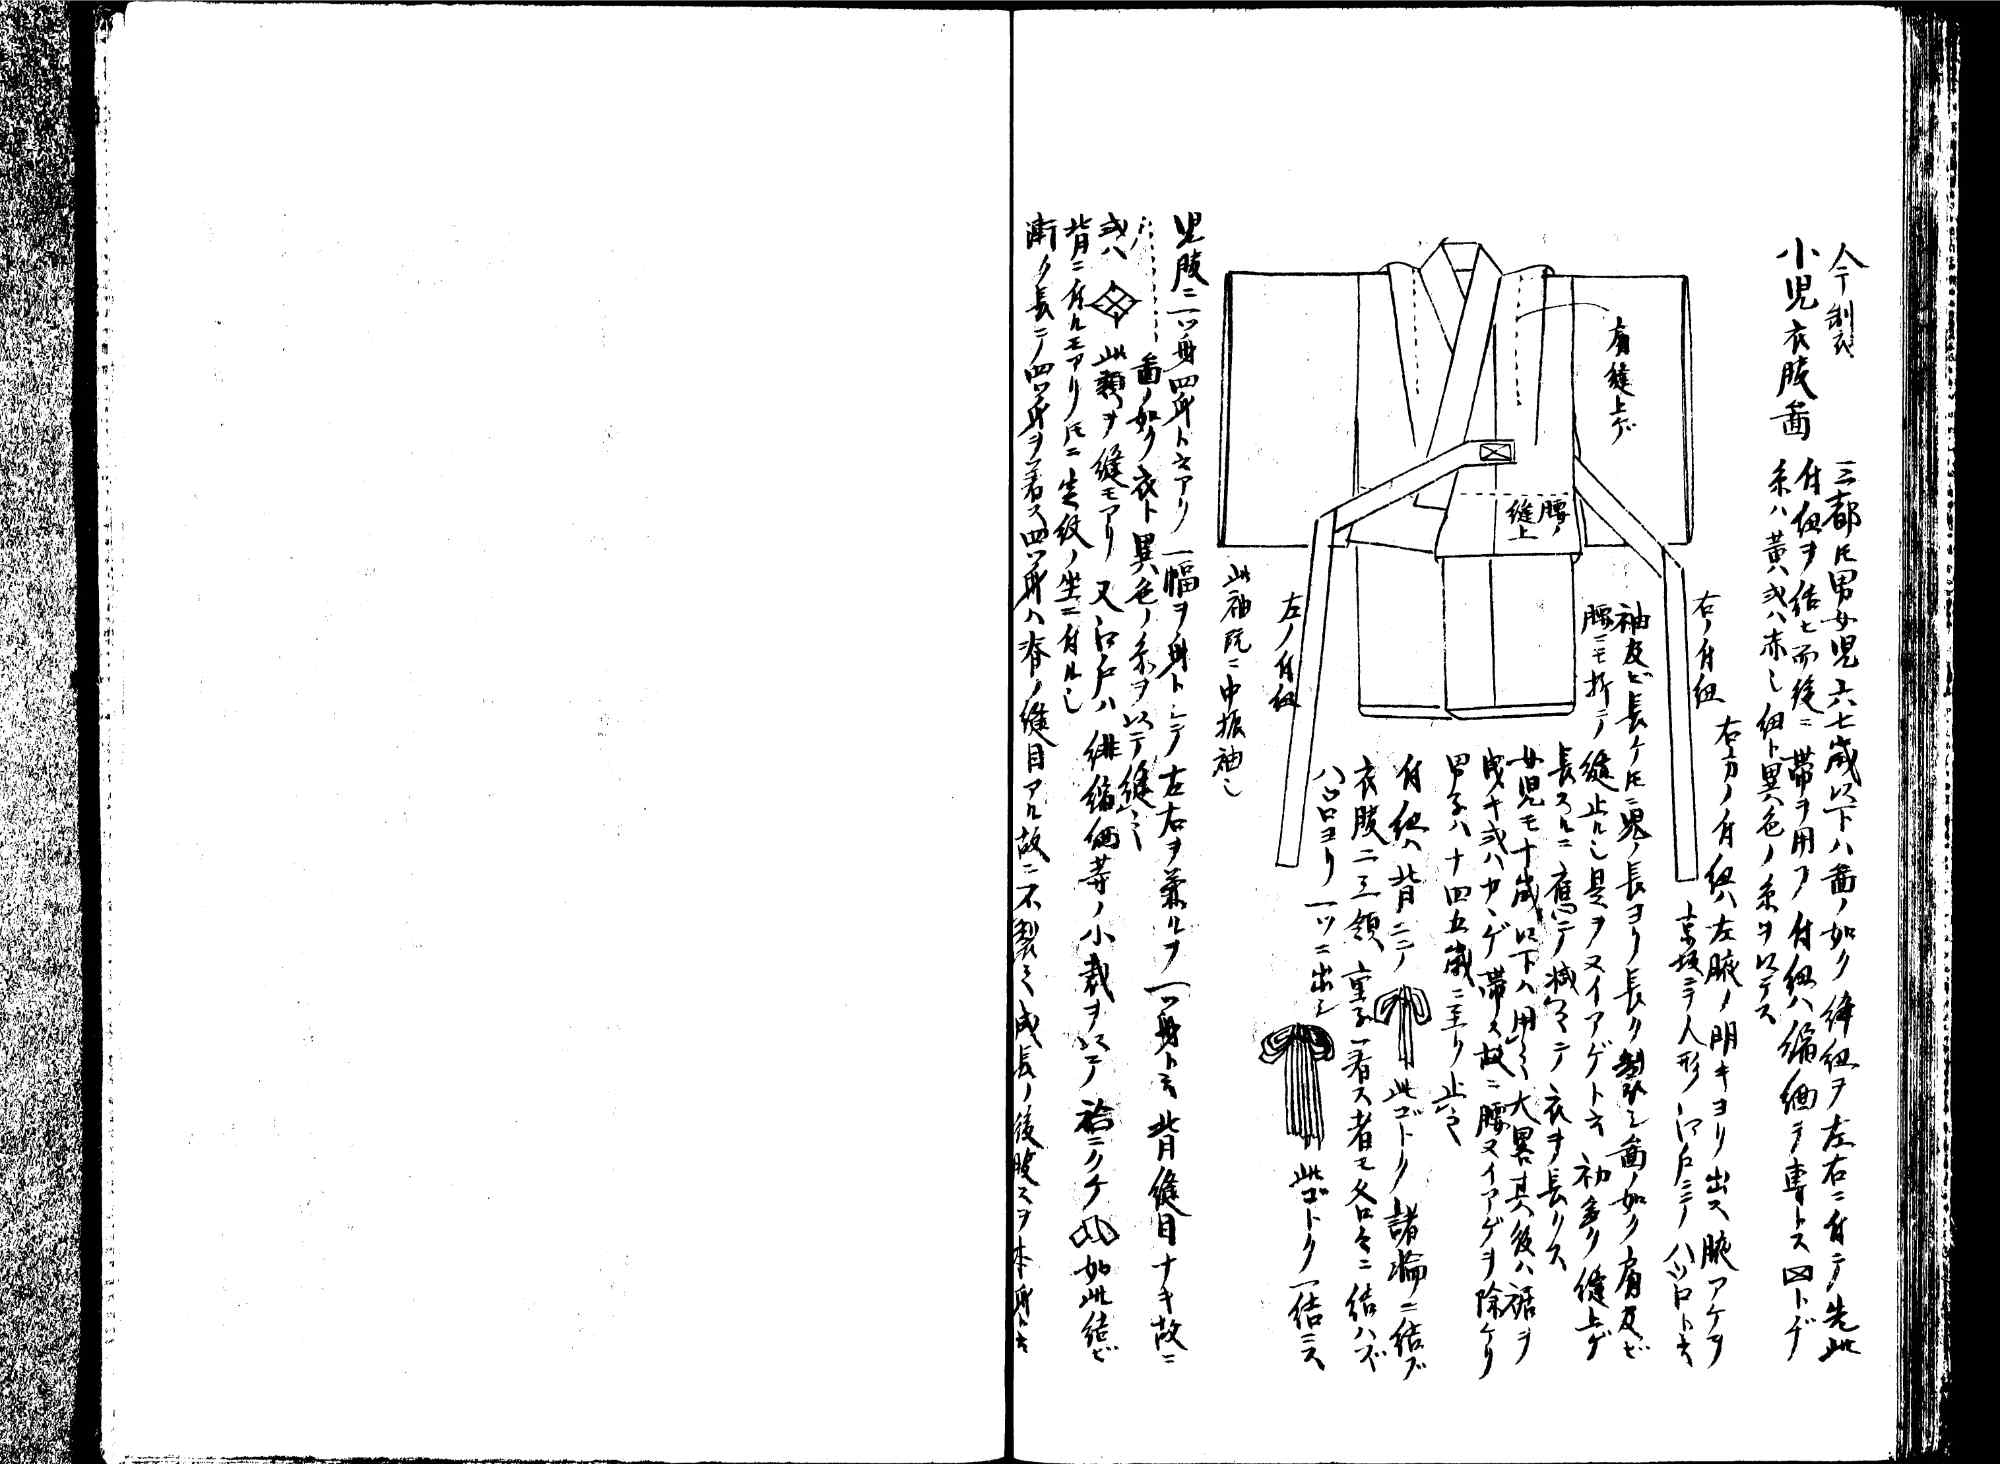 今製
小児衣服啚
三都ﾄﾓ男女児六七歳以下ハ啚ノ如ク絆紐ヲ左右ニ付テ先此
付紐ヲ結ヒ而後ニ帯ヲ用フ付紐ハ縮緬ヲ専トス四トヂ
糸ハ黄或ハ赤也紐ト異色ノ糸ヲ以テス
右方ノ付紐ハ左腋ノ明キヨリ出ス腋アケヲ
京坂ニテ人形江戸ニテハツ口ト云
右ノ付紐
肩縫上ゲ
腰ノ
縫上
袖及ビ長ケﾄﾓニ児ノ長ヨリ長ク製シ啚ノ如ク肩及ビ
腰ニモ折テ縫止ル也是ヲヌイアゲト云初多ク縫上ゲ
長スルニ應テ減之テ衣ヲ長クス
女児モ十歳以下ハ用之大畧其後ハ裾ヲ
曳キ或ハカヽゲ帯ス故ニ腰ヌイアゲヲ除ケリ
男子ハ十四五歳ニ至リ止之
付紐ハ背ニテ此ゴトク諸輪ニ結ブ
衣服二三領重子着ス者モ各々ニ結ハズ
八ツ口ヨリ一ツニ出シ此ゴトク一結ニス
左ノ付紐
此袖既ニ中振袖也
児服ニ一ツ身四ツ身ト云アリ一幅ヲ身トシテ左右ヲ兼ルヲ一ツ身ト云背縫目ナキ故ニ
啚ノ如ク衣ト異色ノ糸ヲ以テ縫之
或ハ此類ヲ縫モアリ又江戸ハ緋縮緬等ノ小裁ヲ以テ袷ニクケ如此結ビ
背ニ付ルモアリﾄﾓニ定紋ノ坐ニ付ル也
漸ク長テ四ツ身ヲ着ス四ツ身ハ脊ノ縫目アル故ニ不製之成長ノ後服スヲ本身ト云